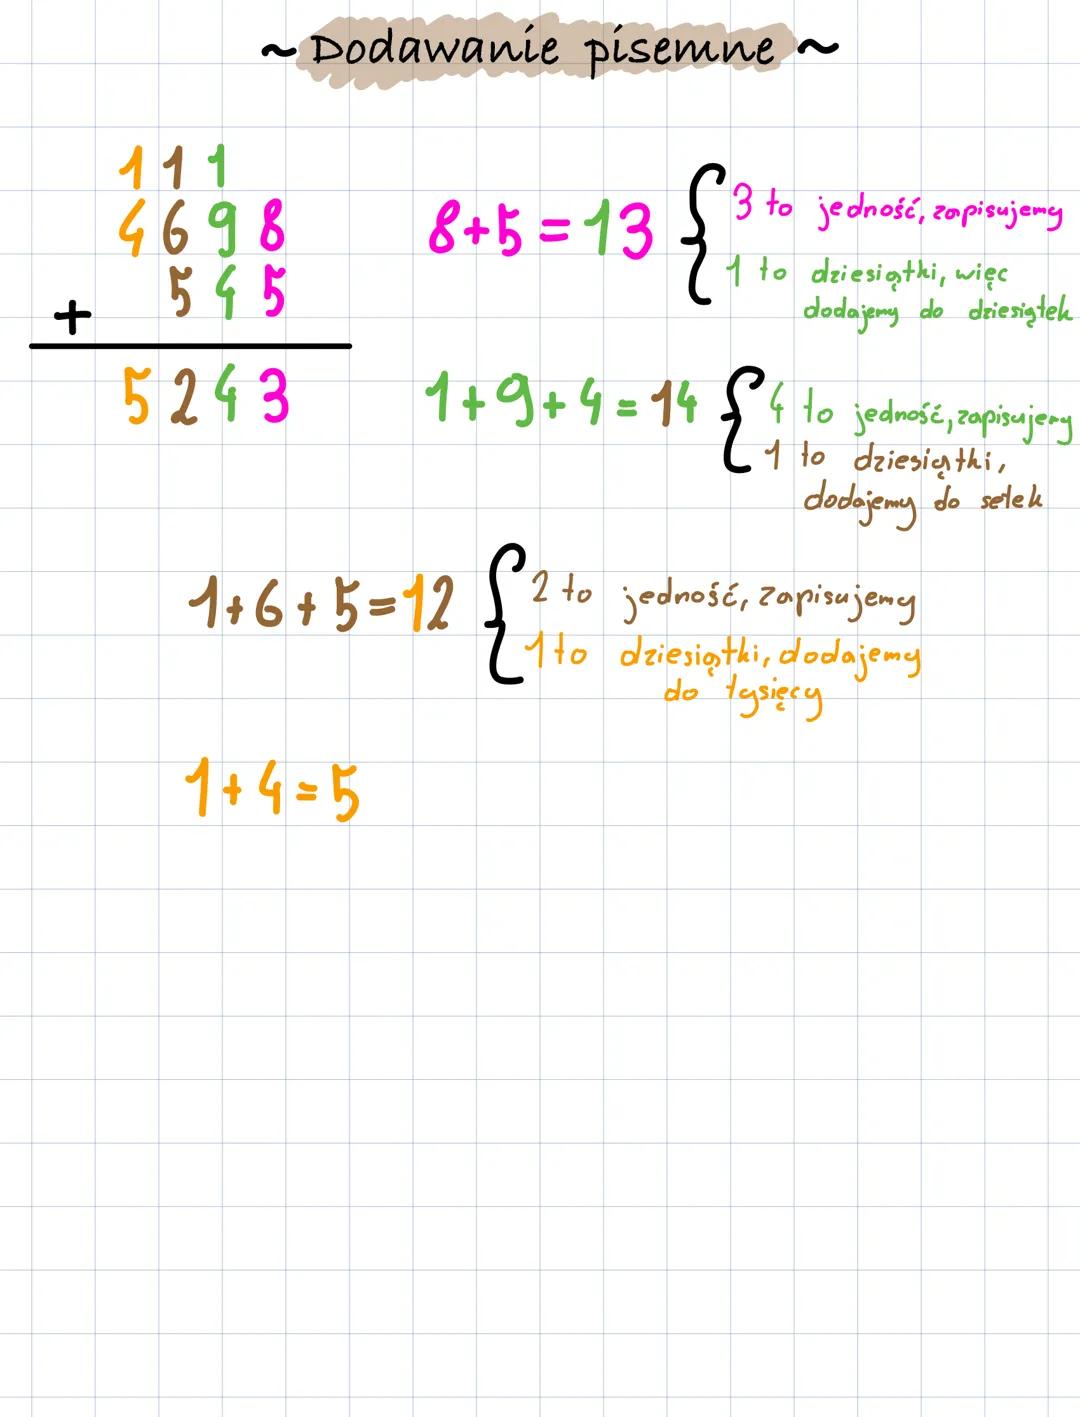 ~ Dodawanie pisemne ~
1 1 1
4 6 9 8
5 4 5
+
5 2 4 3
8+5=13 { 3 to jedność, zapisujemy
1 to dziesiątki, więc
dodajemy do dziesiątek
1+9+4=14 { 4 to jedność, zapisujemy
1 to dziesiątki,
dodajemy do setek
1+6+5=12 { 2 to jedność, zapisujemy
1 to dziesiątki, dodajemy
do tysięcy
1+4=5